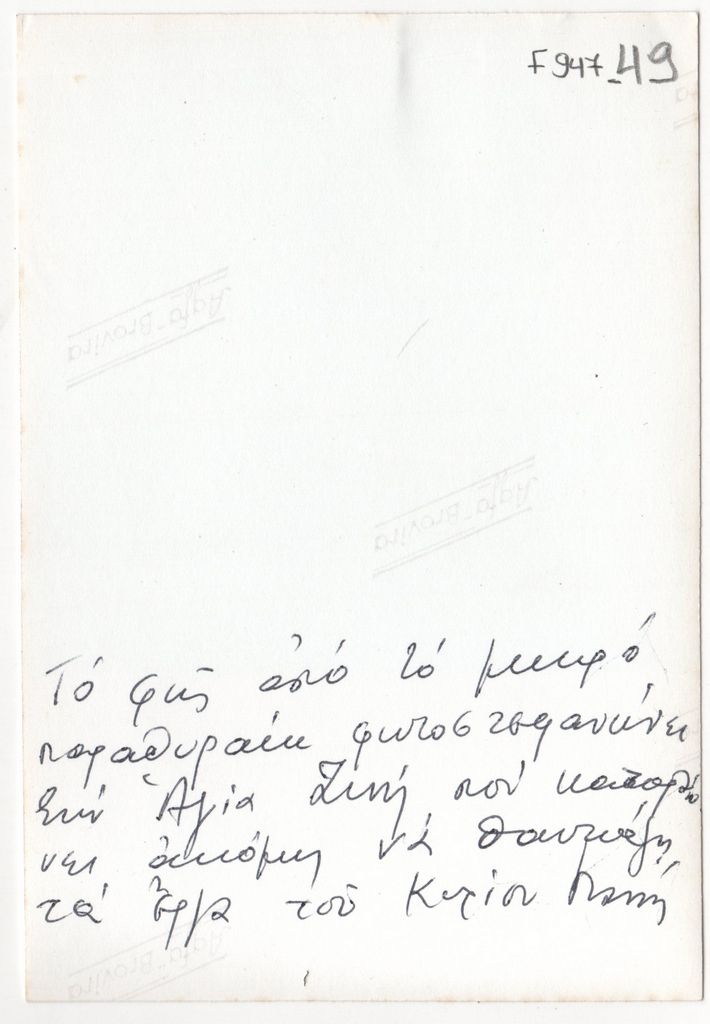 F947-49
Agfa-Brovira
Agfa-Brovira
Τό φῶς ἀπό τό μικρό
παραθυράκι φωτοστεφανώνει
τήν Ἁγία Ζωή πού κατορθώ
νει ἀκόμη νά θαυμάζη
τά ἔργα τοῦ Κυρίου
Agfa-Brovira